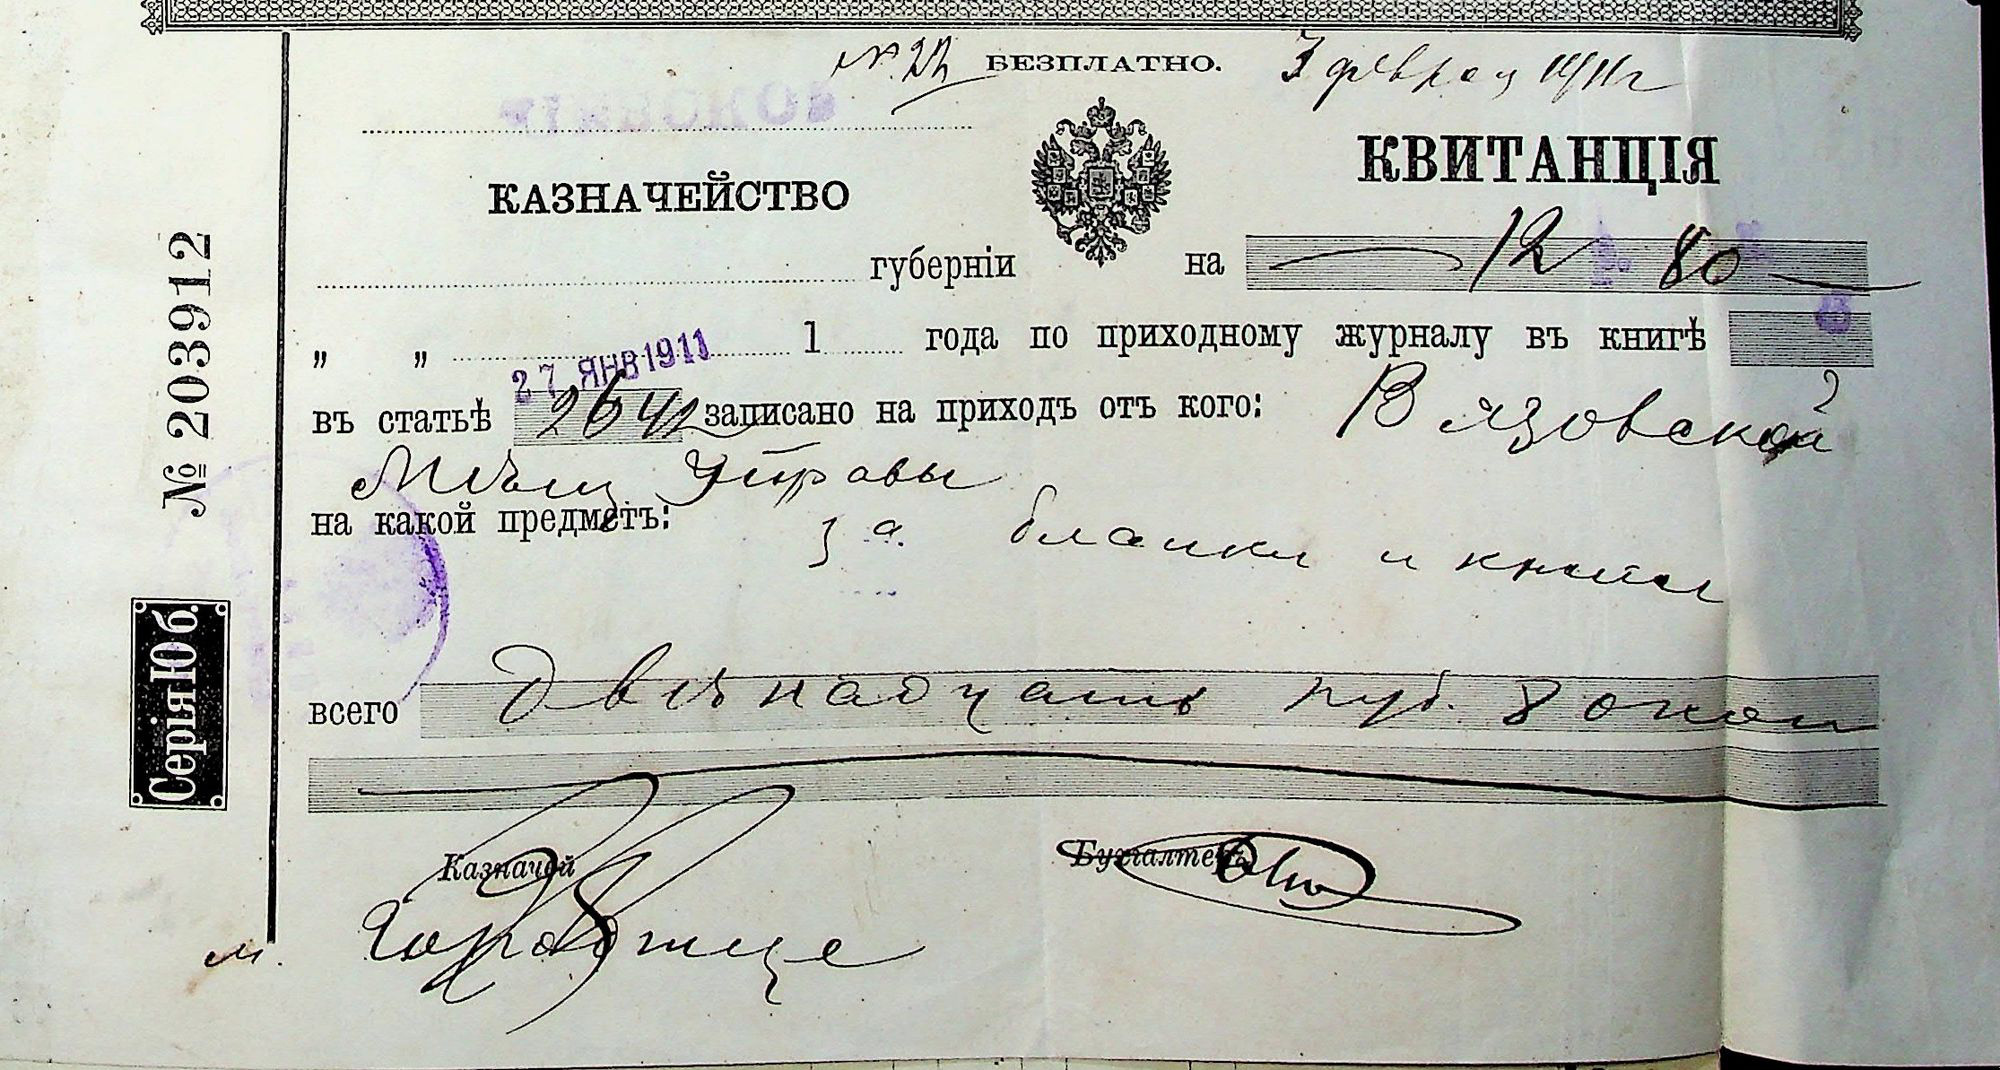 № 22 БЕЗПЛАТНО. 3 феврал 1911 г
КАЗНАЧЕЙСТВО
КВИТАНЦІЯ
губерніи на 12 80
„ „ 27 ЯНВ 1911 1 года по приходному журналу въ книгѣ
въ статьѣ 2642 записано на приходъ отъ кого: Вязовской
Мѣщ Управы
на какой предметъ: за бланки и книги
всего двѣнадцать руб. 80 коп
Казначей Бухгалтеръ
м. Городище
№ 203912
Серія Юб.